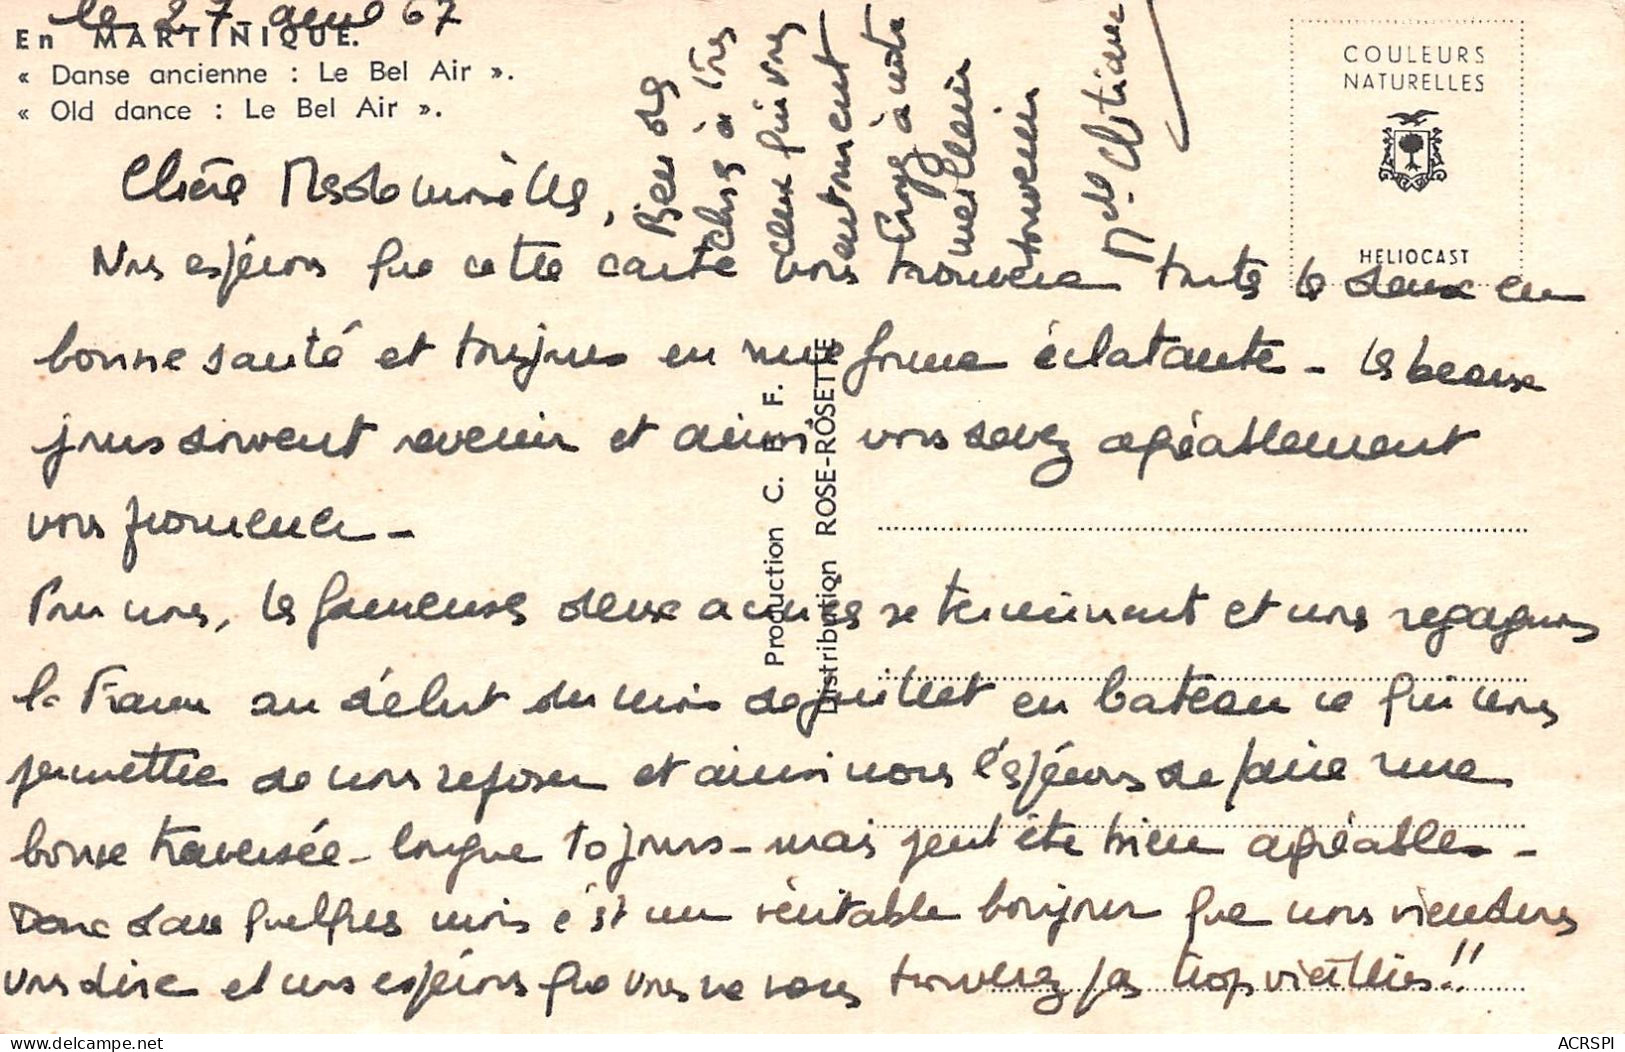 le 27 avril 67
En MARTINIQUE.
« Danse ancienne : Le Bel Air ».
« Old dance : Le Bel Air ».
COULEURS
NATURELLES
HELIOCAST
Chère Mademoiselle,
Nous espérons que cette carte vous trouvera toutes les deux en
bonne santé et toujours en une forme éclatante - les beaux
jours doivent revenir et ainsi vous devez agréablement
vous promener -
Pour nous, les fameuses deux années se terminent et nous regagnons
la France au début du mois de juillet en bateau ce qui nous
permettra de nous reposer et ainsi nous l'espérons de faire une
bonne traversée - longue 10 jours - mais peut être bien agréable -
Donc dans quelques mois c'est un véritable bonjour que nous viendrons
vous dire et nous espérons que vous ne nous trouverez pas trop vieillies !!
Bien des
choses à très
ceux qui vous
entourent
Croyez à notre
meilleur
souvenir
Production C. E. F.
Distribution ROSE-ROSETTE
delcampe.net
ACRSPI